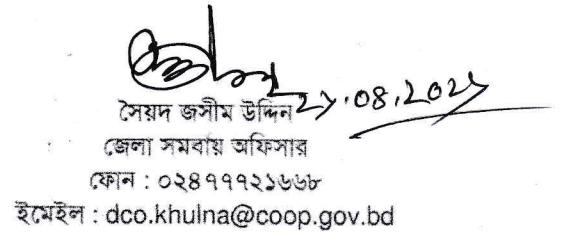 সৈয়দ জসীম উদ্দিন
জেলা সমবায় অফিসার
ফোন : ০২৪৭৭৭২১৬৬৮
ইমেইল : dco.khulna@coop.gov.bd